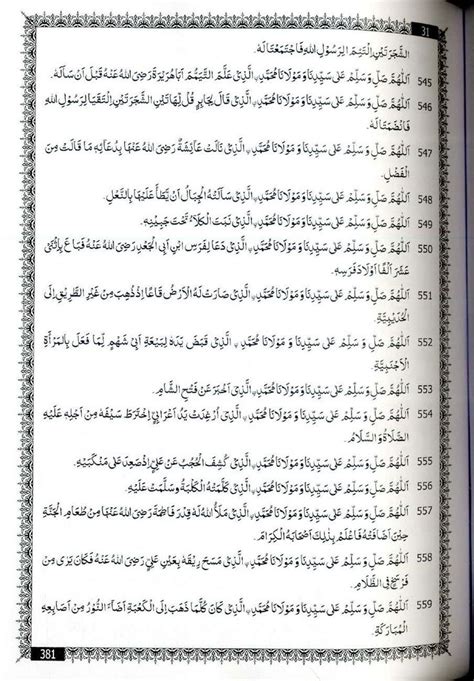 31
الشَّجَرَتَيْنِ الْتَئِمَ الِرَسُوْلِ اللهِ فَاجْتَمَعْتَا لَهٗ.
545 اَللّٰهُمَّ صَلِّ وَسَلِّمْ عَلٰى سَيِّدِنَا وَمَوْلَانَا مُحَمَّدٍ، الَّذِيْ عَلَّمَ التَّيَمُّمَ اَبَاهُرَيْرَةَ رَضِيَ اللهُ عَنْهُ قَبْلَ اَنْ سَاَلَهٗ.
546 اَللّٰهُمَّ صَلِّ وَسَلِّمْ عَلٰى سَيِّدِنَا وَمَوْلَانَا مُحَمَّدٍ، الَّذِيْ قَالَ لِجَابِرٍ قُلْ لِهَاتَيْنِ الشَّجَرَتَيْنِ الْتَقِيَا لِرَسُوْلِ اللهِ
فَانْضَمَّتَا لَهٗ.
547 اَللّٰهُمَّ صَلِّ وَسَلِّمْ عَلٰى سَيِّدِنَا وَمَوْلَانَا مُحَمَّدٍ، الَّذِيْ نَالَتْ عَآئِشَةُ رَضِيَ اللهُ عَنْهَا بِدُعَائِهٖ مَا قَالَتْ مِنَ
الْفَضْلِ.
548 اَللّٰهُمَّ صَلِّ وَسَلِّمْ عَلٰى سَيِّدِنَا وَمَوْلَانَا مُحَمَّدٍ، الَّذِيْ سَاَلَتْهُ الْجِبَالُ اَنْ يَّطَاَ عَلَيْهَا بِالنَّعْلِ.
549 اَللّٰهُمَّ صَلِّ وَسَلِّمْ عَلٰى سَيِّدِنَا وَمَوْلَانَا مُحَمَّدٍ، الَّذِيْ نَبَتَ الْكَلَاُ تَحْتَ جَبِيْنِهٖ.
550 اَللّٰهُمَّ صَلِّ وَسَلِّمْ عَلٰى سَيِّدِنَا وَمَوْلَانَا مُحَمَّدٍ، الَّذِيْ دَعَا لِفَرَسِ ابْنِ اَبِي الْجَعْدِ رَضِيَ اللهُ عَنْهُ فَبَاعَ بِاثْنَيْ
عَشَرَ اَلْفًا اَوْلَادَ فَرَسِهٖ.
551 اَللّٰهُمَّ صَلِّ وَسَلِّمْ عَلٰى سَيِّدِنَا وَمَوْلَانَا مُحَمَّدٍ، الَّذِيْ صَارَتْ لَهُ الْاَرْضُ قَاعًا اِذْ ذَهَبَ مِنْ غَيْرِ الطَّرِيْقِ اِلَى
الْحُدَيْبِيَّةِ.
552 اَللّٰهُمَّ صَلِّ وَسَلِّمْ عَلٰى سَيِّدِنَا وَ مَوْلَانَا مُحَمَّدٍ، الَّذِيْ قَبَضَ يَدَهٗ لِبَيْعَةِ اَبِيْ شَهْمٍ لِّمَا فَعَلَ بِالْمَرْاَةِ
الْاَجْنَبِيَّةِ.
553 اَللّٰهُمَّ صَلِّ وَسَلِّمْ عَلٰى سَيِّدِنَا وَمَوْلَانَا مُحَمَّدٍ، الَّذِيْ اَخْبَرَ عَنْ فَتْحِ الشَّامِ.
554 اَللّٰهُمَّ صَلِّ وَسَلِّمْ عَلٰى سَيِّدِنَا وَمَوْلَانَا مُحَمَّدٍ، الَّذِيْ اُرْعِدَتْ يَدُ اَعْرَابِيٍّ اِخْتَرَطَ سَيْفَهٗ مِنْ اَجْلِهٖ عَلَيْهِ
الصَّلَاةُ وَالسَّلَامُ.
555 اَللّٰهُمَّ صَلِّ وَسَلِّمْ عَلٰى سَيِّدِنَا وَمَوْلَانَا مُحَمَّدٍ، الَّذِيْ كُشِفَ الْحُجُبُ عَنْ عَلِيٍّ اِذْ صَعِدَ عَلٰى مَنْكِبَيْهِ.
556 اَللّٰهُمَّ صَلِّ وَسَلِّمْ عَلٰى سَيِّدِنَا وَمَوْلَانَا مُحَمَّدٍ، الَّذِيْ كَلَّمَتْهُ الْكَلْبَةُ وَسَلَّمَتْ عَلَيْهِ.
557 اَللّٰهُمَّ صَلِّ وَسَلِّمْ عَلٰى سَيِّدِنَا وَمَوْلَانَا مُحَمَّدٍ، الَّذِيْ مَلَأَ اللهُ لَهٗ قِدْرَ فَاطِمَةَ رَضِيَ اللهُ عَنْهَا مِنْ طَعَامِ الْجَنَّةِ
حِيْنَ اَضَافَتْهُ فَاَعْلَمَ بِذٰلِكَ اَصْحَابَهُ الْكِرَامَ.
558 اَللّٰهُمَّ صَلِّ وَسَلِّمْ عَلٰى سَيِّدِنَا وَمَوْلَانَا مُحَمَّدٍ، الَّذِيْ مَسَحَ رِيْقَهٗ بِعَيْنِ عَلِيٍّ رَضِيَ اللهُ عَنْهُ فَكَانَ يَرٰى مِنْ
فَرْسَخٍ فِي الظَّلَامِ.
559 اَللّٰهُمَّ صَلِّ وَسَلِّمْ عَلٰى سَيِّدِنَا وَمَوْلَانَا مُحَمَّدٍ، الَّذِيْ كَانَ كُلَّمَا ذَهَبَ اِلَى الْكَعْبَةِ اَضَآءَ النُّوْرُ مِنْ اَصَابِعِهِ
الْمُبَارَكَةِ.
381